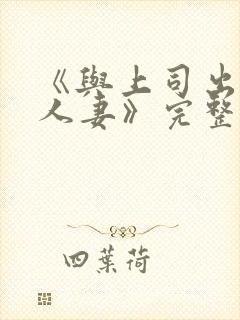 《與上司出
人妻》完整
四葉荷